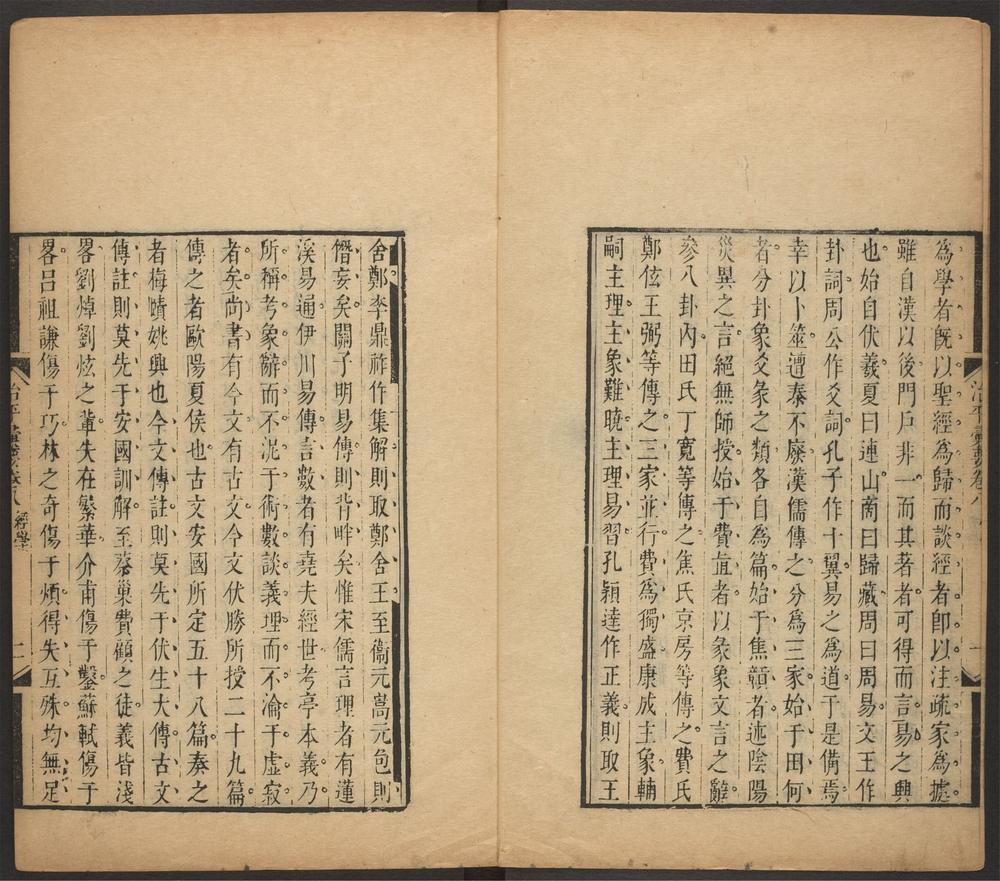 為學者旣以聖經為歸而談經者卽以注疏家為據
雖自漢以後門戶非一而其著者可得而言易之興
也始自伏羲夏曰連山商曰歸藏周曰周易文王作
卦詞周公作爻詞孔子作十翼易之為道于是備焉
幸以卜筮遭秦不廢漢儒傳之分為三家始于田何
者分卦象爻象之類各自為篇始于焦贛者述陰陽
災異之言絕無師授始于費直者以彖象文言之辭
參八卦內田氏丁寬等傳之焦氏京房等傳之費氏
鄭伭王弼等傳之三家並行費為獨盛康成主象輔
嗣主理主象難曉主理易習孔穎達作正義則取王
舍鄭李鼎祚作集解則取鄭舍王至衞元嵩元包則
僭妄矣關子明易傳則背畔矣惟宋儒言理者有蓮
溪易通伊川易傳言數者有堯夫經世考亭本義乃
所稱考象辭而不泥于術數談義理而不淪于虛寂
者矣尚書有今文有古文今文伏勝所授二十九篇
傳之者歐陽夏侯也古文安國所定五十八篇奏之
者梅賾姚興也今文傳註則莫先于伏生大傳古文
傳註則莫先于安國訓解至蔡巢費顧之徒義皆淺
畧劉焯劉炫之軰失在繁華介甫傷于鑿蘇軾傷于
畧呂祖謙傷于巧林之奇傷于煩得失互殊均無足
經學
二